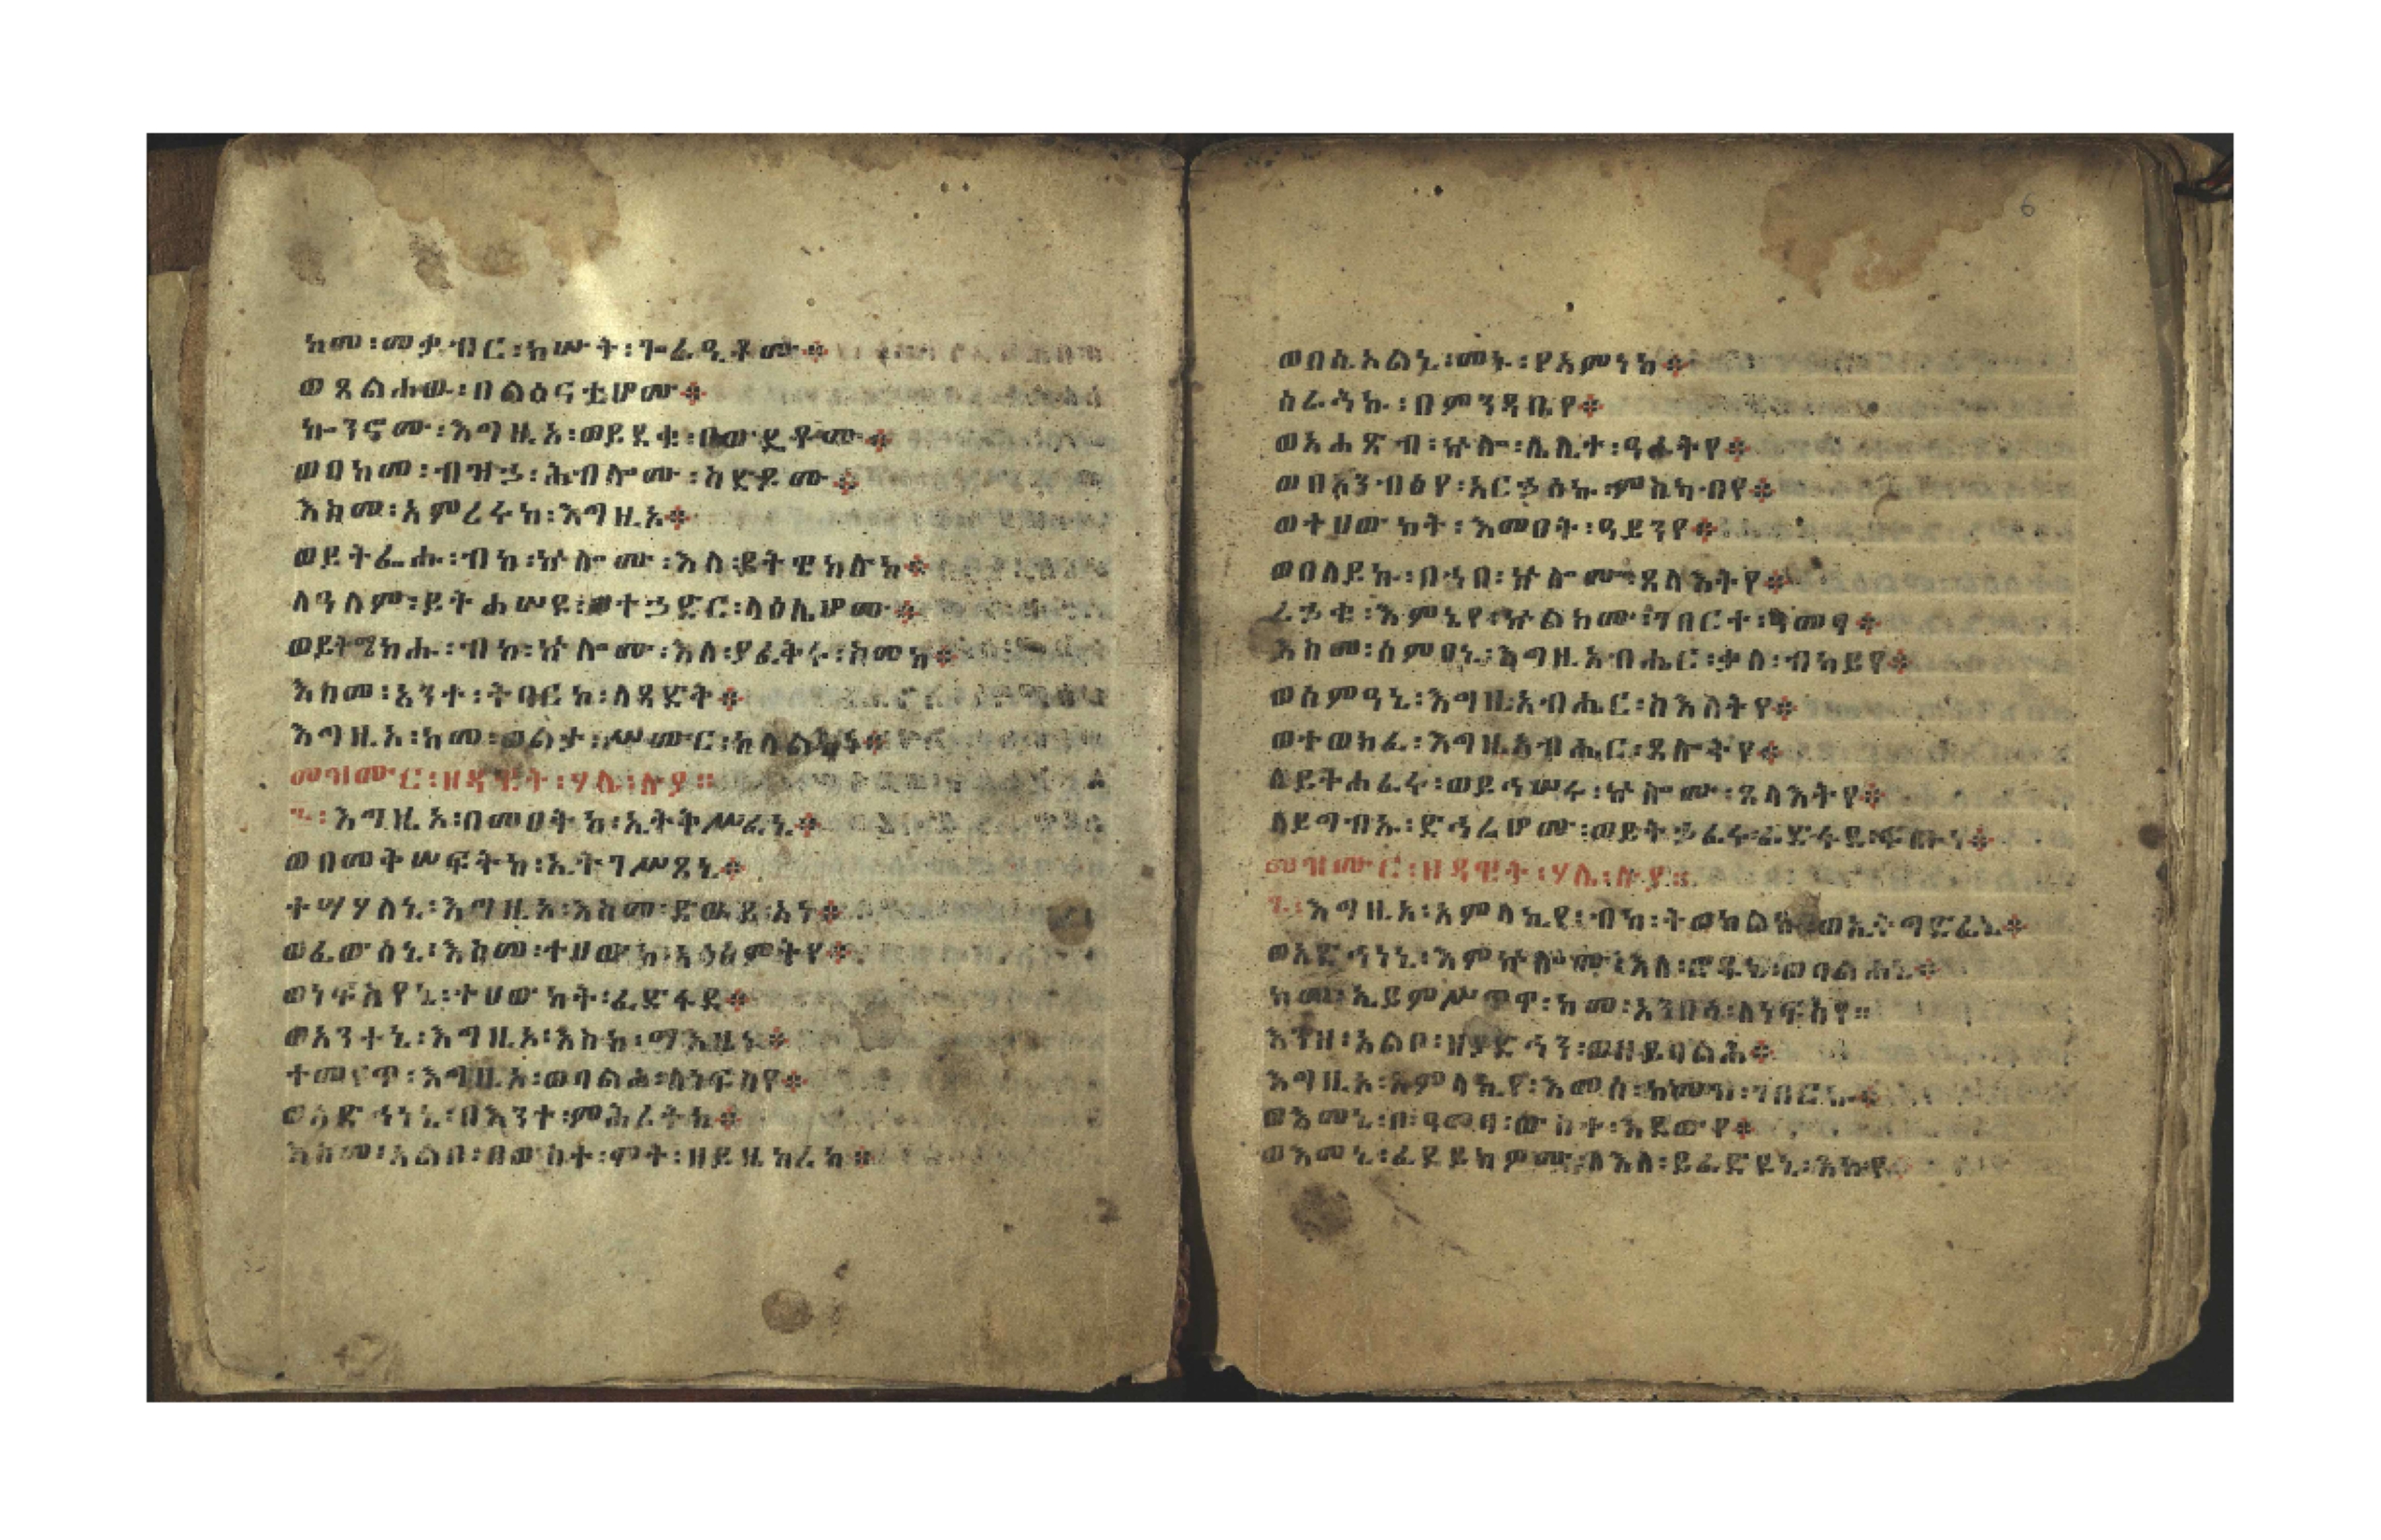 ከመ፡መቃብር፡ክሡት፡ጐራዒቶሙ፨
ወጸልሐዉ፡በልሳናቲሆሙ፨
ኰንኖሙ፡እግዚኦ፡ወይደቁ፡በውዴቶሙ፨
ወበከመ፡ብዝኃ፡ሕብሎሙ፡ስድዶሙ፨
እስመ፡አምረሩከ፡እግዚኦ፨
ወይትፌሥሑ፡ብከ፡ኵሎሙ፡እለ፡ይትዌከሉከ፨
ለዓለም፡ይትሐሠዩ፡ወተኃድር፡ላዕሌሆሙ፨
ወይትሜክሑ፡ብከ፡ኵሎሙ፡እለ፡ያፈቅሩ፡ስመከ፨
እስመ፡አንተ፡ትባርክ፡ለጻድቅ፨
እግዚኦ፡ከመ፡ወልታ፡ሥሙር፡ከለልከነ፨
መዝሙር፡ዘዳዊት፡ሃሌ፡ሉያ።
፮፡እግዚኦ፡በመዐትከ፡ኢትቅሥፈኒ፨
ወበመቅሠፍትከ፡ኢትገሥጸኒ፨
ተሣሃለኒ፡እግዚኦ፡እስመ፡ድዉይ፡አነ፨
ወፈውሰኒ፡እስመ፡ተሀውከ፡አዕፅምትየ፨
ወነፍስየኒ፡ተሀውከት፡ፈድፋደ፨
ወአንተኒ፡እግዚኦ፡እስከ፡ማእዜኑ፨
ተመየጥ፡እግዚኦ፡ወባልሓ፡ለነፍስየ፨
ወአድኅነኒ፡በእንተ፡ምሕረትከ፨
እስመ፡አልቦ፡በውስተ፡ሞት፡ዘይዜከረከ፨
ወበሲኦልኒ፡መኑ፡የአምነከ፨
ሰራሕኩ፡በምንዳቤየ፨
ወአሐጽብ፡ኵሎ፡ሌሊተ፡ዓራትየ፨
ወበአንብዕየ፡አርኃስኩ፡ምስካብየ፨
ወተሀውከት፡እመዐት፡ዓይንየ፨
ወበለይኩ፡በኀበ፡ኵሎሙ፡ጸላእትየ፨
ረኃቁ፡እምኔየ፡ኵልክሙ፡ገበርተ፡ዓመፃ፨
እስመ፡ሰምዐኒ፡እግዚአብሔር፡ቃለ፡ብካይየ፨
ወሰምዓኒ፡እግዚአብሔር፡ስእለትየ፨
ወተወክፈ፡እግዚአብሔር፡ጸሎትየ፨
ለይትሐፈሩ፡ወይኅሠሩ፡ኵሎሙ፡ጸላእትየ፨
ለይግብኡ፡ድኅሬሆሙ፡ወይትኃፈሩ፡ፈድፋደ፡ፍጡነ፨
መዝሙር፡ዘዳዊት፡ሃሌ፡ሉያ።
፯፡እግዚኦ፡አምላኪየ፡ብከ፡ተወከልኩ፡ወኢትግድፈኒ፨
ወአድኅነኒ፡እምኵሎሙ፡እለ፡ሮዱኒ፡ወባልሐኒ፨
ከመ፡ኢይምሥጥዋ፡ከመ፡አንበሳ፡ለነፍስየ።
እንዘ፡አልቦ፡ዘያድኅን፡ወዘይባልሕ፨
እግዚኦ፡አምላኪየ፡እመሰ፡ከመዝ፡ገበርኩ፨
ወእመኒ፡በ፡ዓመፃ፡ውስተ፡እደውየ፨
ወእመኒ፡ፈደይክምዎሙ፡ለእለ፡ይፈድዩኒ፡እኩየ